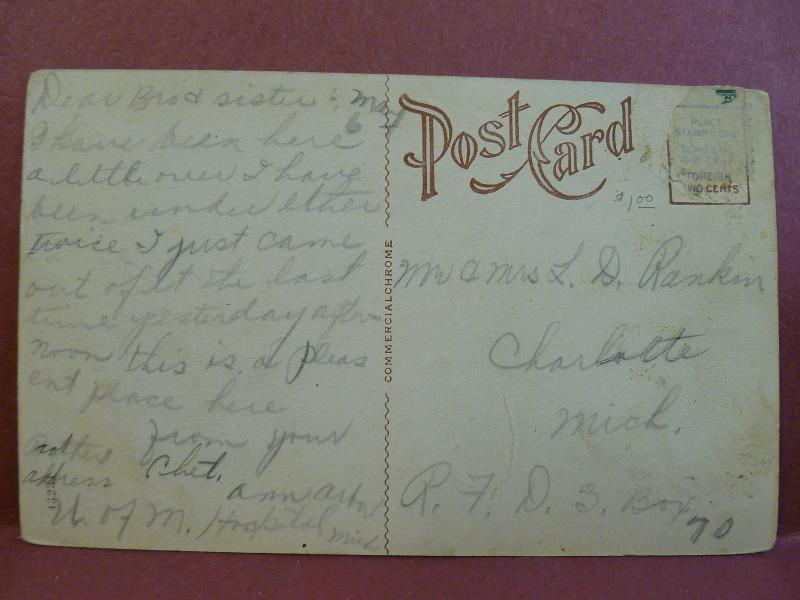 Dear Bro & sister : May
6
I have been here
a little over I have
been under ether
twice I just came
out of it the last
time yesterday after
noon this is a pleas
ent place here
from your
Chet.
address
Ann Arbor
U. of M. Hospital Mich.
COMMERCIALCHROME
Post Card
PLACE
STAMP HERE
DOMESTIC
ONE CENT
FOREIGN
TWO CENTS
$1.00
Mr & Mrs L. D. Rankin
Charlotte
Mich.
R. F. D. 3. Box
70